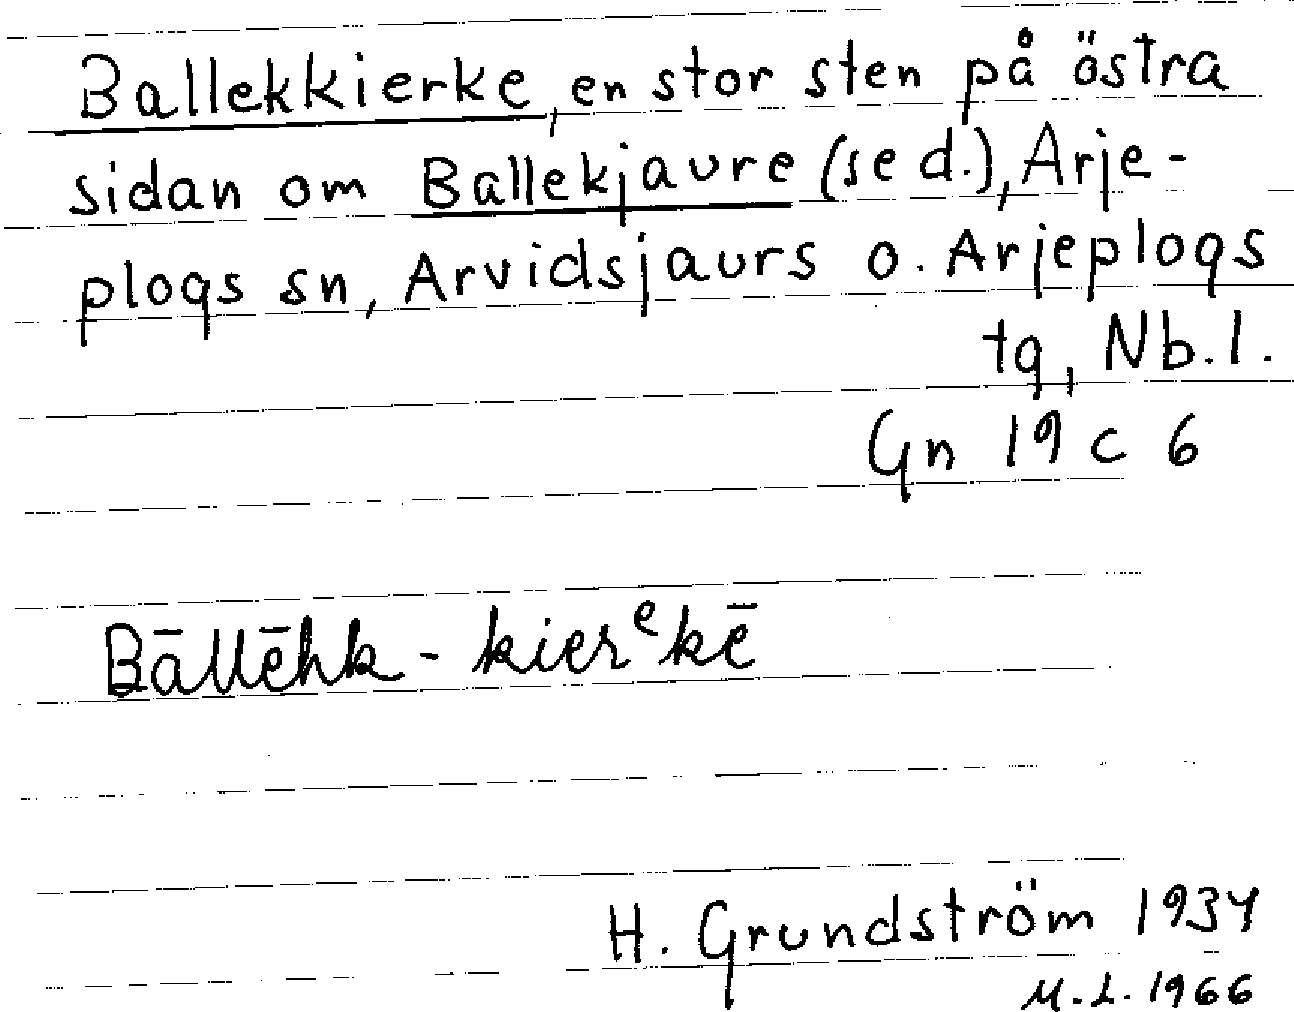 Ballekkierke, en stor sten på östra
sidan om Ballekjaure (se d.), Arje-
plogs sn, Arvidsjaurs o. Arjeplogs
tg, Nb. l.
Gn 19 c 6
Bāllēhk - kierᵉkē
H. Grundström 1934
M. L. 1966